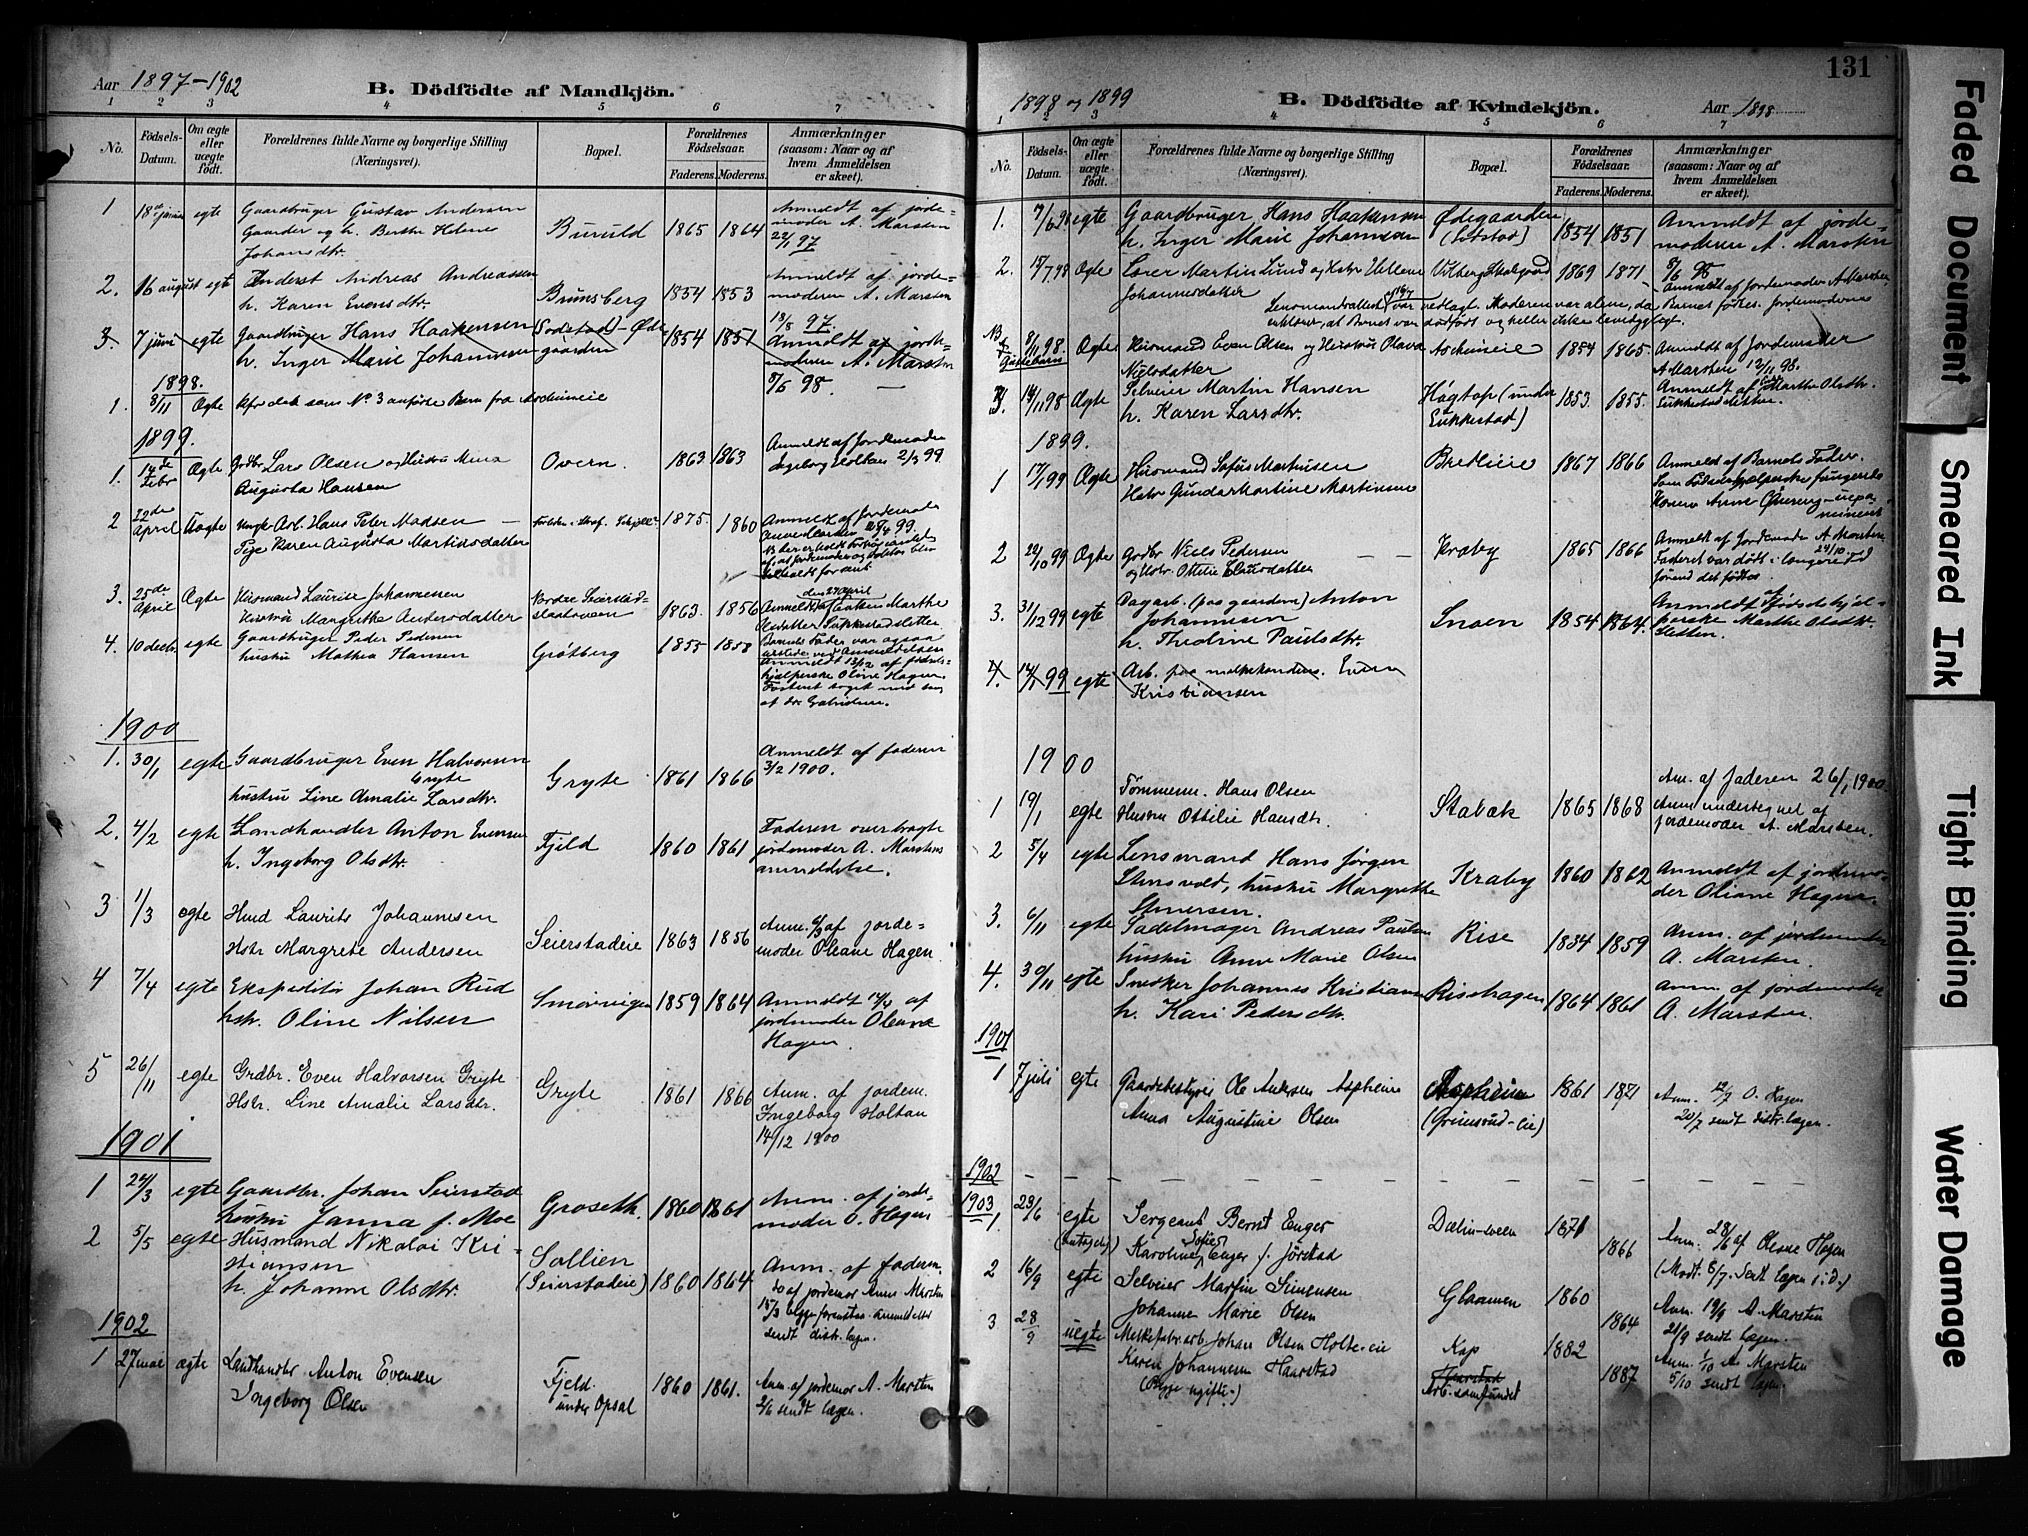 Aar 1897-1902
B. Dödfödte af Mandkjön.
1 2 3 4 5 6 7
No.
Födsels-Datum.
Om ægte eller uægte födt.
Forældrenes fulde Navne og borgerlige Stilling (Næringsvei).
Bopæl.
Forældrenes Födselsaar.
Faderens. Moderens.
Anmærkninger (saasom: Naar og af hvem Anmeldelsen er skeet).
1 18de januar egte Gaardbruger Gustav Andersen
Gaarder og h. Berthe Helene
Johansdtr. Buruld 1865 1864
Anmeldt af jorde-
moder A. Marsten
22/1 97
2. 16 august egte Anderst Andreas Andreassen
h. Karen Evensdtr. Brunsberg 1854 1853
Anmeldt af jorde-
moderen A. Marsten
18/8 97.
3. 7 juni egte Gaardbruger Hans Haakensen
h. Inger Marie Johannesen (Sodestad) - Øde-
gaarden 1854 1851
Anmeldt af jorde-
moderen A. Marsten
8/6 98.
1898.
1. 8/11 Ægte
No. 3 anførte Barn fra Aschimeie
1899.
1. 14de Febr Ægte Gdbr Lars Olsen og Hustru Mina
Augusta Hansen Overn. 1863 1863
Anmeldt af Jordemoder
Ingeborg Holtan 2/3 99.
2 22de April Uægte Ungk. Arb. Hans Peter Madsen
Pige Karen Augusta Martinsdatter 1875. 1860
Anmeldt af Jordemoder
3. 25de April Ægte Husmand Laurits Johannessen
Hustru Margrethe Andersdatter Nordre Seierstad-
1863. 1856
den 29 april
Anmeldt af Enken Marthe
Olsdatter Sukkestadsletten
4. 10 decbr. egte Gaardbruger Peder Pedersen
hustru Mathea Hansen Grøtberg 1855 1858
Barnets Fader var ogsaa
tilstede ved Anmeldelsen
Anmeldt 13/12 af fødsels-
hjælperske Oline Hagen.
1900
1. 30/1 egte Gaardbruger Even Halvorsen
Gryte
hustru Line Amalie Larsdtr. Gryte 1861 1866
Anmeldt af faderen
3/2 1900.
2. 4/2 egte Landhandler Anton Evensen
h. Ingeborg Olsdtr. Fjeld 1860 1861
Faderen overbragte
jordemoder A. Marstens
anmeldelse.
3 1/3 egte Hmd Laurits Johannesen
Hstr Margrete Andersen Seierstadeie 1863 1856
Anm. 6/3 af jorde-
moder Oleane Hagen
4 7/4 egte Ekspeditør Johan Rud
hstr. Oline Nilsen Smørvigen 1859 1864
Anmeldt 12/4 af
jordemoder Oleane
Hagen.
5 26/11 egte Grdbr. Even Halvorsen Gryte
Hstr. Line Amalie Larsdtr. Gryte 1861 1866
Anm. af jordem.
Ingeborg Holtan
14/12 1900
1901
1 24/3 egte Gaardbr. Johan Seierstad
hustru Janna f. Moe Groseth. 1860 1861
Anm. af jorde-
moder O. Hagen
2 5/5 egte Husmand Nikolai Kri-
stiansen
h. Johanne Olsdtr. Sollien
(Seierstadeie) 1860 1864
Anm. af faderen.
do af jordemor Anne Marsten
sendt distr. lægen
1902
1 27 mai ægte Landhandler Anton Evensen
Ingeborg Olsen Fjeld
under Opsal 1860 1861.
Anm. af jordemor A. Marsten
2/6 sendt lægen.
131
1898 og 1899
B. Dödfödte af Kvindekjön.
Aar 1898
1 2 3 4 5 6 7
No.
Födsels-Datum.
Om ægte eller uægte födt.
Forældrenes fulde Navne og borgerlige Stilling (Næringsvei).
Bopæl.
Forældrenes Födselsaar.
Faderens. Moderens.
Anmærkninger (saasom: Naar og af hvem Anmeldelsen er skeet).
1. 7/6 98 egte Gaardbruger Hans Haakensen
h. Inger Marie Johannesen Ødegaarden
(Sodstad) 1854 1851
Anmeldt af jorde-
moderen A. Marsten
8/6 98
2. 15/7 98 Ægte Martin Lund og Hstr Hellene
Johannesdatter 1869 1871
Anmeldt af Jordemoder A Marsten
Lensmandsattest af 16/7 var vedlagt. Moderen var alene, da Barnet fødtes. Jordemoderen
erklærer, at Barnet var dødfødt og heller ikke levedygtigt.
Guttebarn
8/11 98. Ægte Husmand Even Olsen og Hustru Olava
Nielsdatter Aschimeie 1854 1865.
Anmeldt af Jordemoder
A Marsten 12/11 98.
3. 14/11 98 Ægte Selveier Martin Hansen
h. Karen Larsdtr. Høgtop (under
Sukkestad) 1853. 1855.
Anmeldt af Enke Marthe Olsdtr.
Sukkestadsletten.
1899.
1 17/1 99 Ægte Husmand Sofus Martinsen
Hstr Gunda Martine Martinsen Bredlieie 1867 1866
Anmeldt af Barnets Fader.
Som Fødselshjælperske fungerede
2 22/10 99 Ægte Gdbr Niels Pedersen
og Hstr. Ottilie Clausdatter Kraby 1865 1866
Anmeldt af Jordemoder A Marsten
24/10.
Fosteret var dødt i længere Tid
førend det fødtes.
3. 31/12 99 egte Dagarb. (paa gaarden) Anton
Johannesen
h. Thedine Paulsdtr. Snoen 1854 1864.
Anmeldt af fødselshjæl-
perske Marthe Olsdtr.
Sletten.
4. 14/1 99 egte Arb. paa melkekondens. Even
Kristiansen
1900
1 19/1 egte Tømmerm. Hans Olsen
Hustru Ottilie Hansdtr. Stabæk 1865 1868
Anm. af Faderen 26/1 1900.
Anm undertegnet af
jordemoder A. Marsten.
2 5/4 egte Lensmand Hans Jørgen
Stensvold, hustru Margrethe
Simersen. Kraby 1860 1862
Anmeldt af jordemo-
der Oliane Hagen.
3. 6/11 egte Sadelmager Andreas Paulsen
hustru Anne Marie Olsen Rise 1834 1859
Anm. af jordemoder
A. Marsten.
4. 30/11 egte Snedker Johannes Kristians
h. Kari Pedersdtr. Risshagen 1864 1861
Anm. af jordemoder
A. Marsten.
1901
1 7 juli egte Gaardbestyrer Ole Andersen Aspheim
Anna Augustine Olsen Aspheim
(Grimsrud-eie) 1861 1871
Anm. 12/7 O. Hagen
20/7 sendt distr. lægen.
1902 - - - - - - -
1903
1. 23/6 egte
(antagelig) Sergeant Bernt Enger
Karoline Sofie Enger f. Jørstad Dælin-øen 1871 1866
Anm. 28/6 af Oleane Hagen
(Modt. 8/7. Sendt lægen s.d.)
2 16/9 egte Selveier Martin Simensen
Johanne Marie Olsen Glaamen 1860 1864
Anm. 19/9 A. Marsten
21/9 sendt lægen.
3 28/9 uegte Melkefabr.arb. Johan Olsen Holte-eie
Karen Johannesen Haarstad
(Begge ugifte.) Kap
Haarstad
Arb. samfundet 1882 1887
Anm. 1/10 A. Marsten
5/10 sendt lægen.
Faded Document
Smeared Ink
Tight Binding
Water Damage